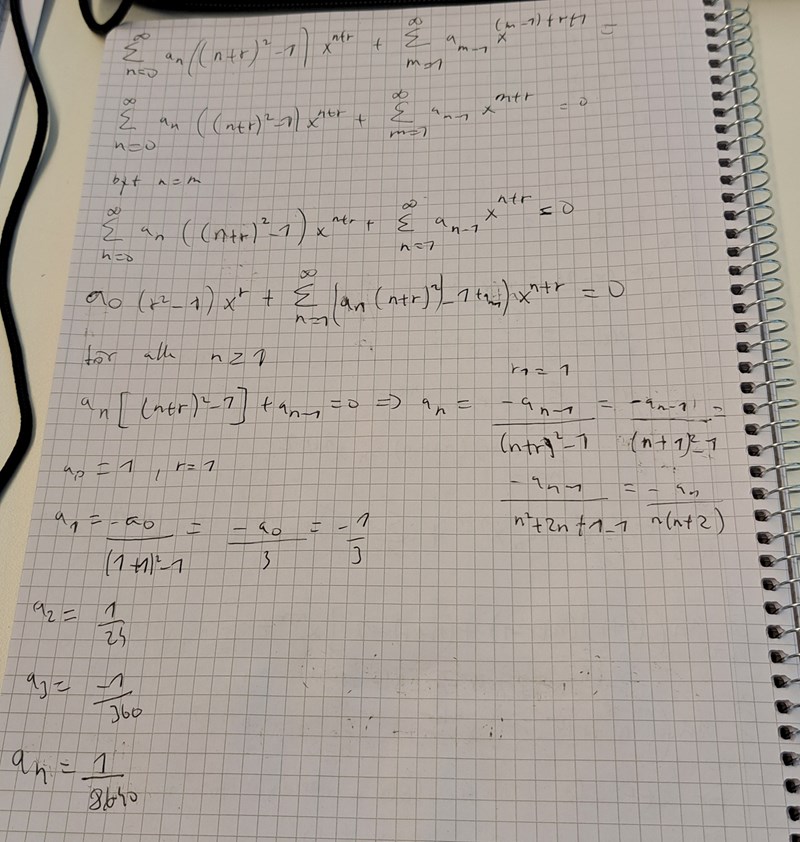 ∑_{n=0}^{∞} a_n((n+r)²-1) x^{n+r} + ∑_{m=1}^{∞} a_{m-1} x^{(m-1)+r+1} =
∑_{n=0}^{∞} a_n ((n+r)²-1) x^{n+r} + ∑_{m=1}^{∞} a_{m-1} x^{m+r} = 0
n = m
∑_{n=0}^{∞} a_n ((n+r)²-1) x^{n+r} + ∑_{n=1}^{∞} a_{n-1} x^{n+r} = 0
a_0 (r²-1) x^r + ∑_{n=1}^{∞} (a_n (n+r)²)-1+ ) x^{n+r} = 0
for all n ≥ 1
r_1 = 1
a_n [(n+r)²-1] + a_{n-1} = 0 => a_n = -a_{n-1}/((n+r)²-1) = -a_{n-1}/((n+1)²-1) =
-a_{n-1}/(n²+2n+1-1) = -a_n/(n(n+2))
a_0 = 1, r=1
a_1 = -a_0/((1+1)²-1) = -a_0/3 = -1/3
a_2 = 1/24
a_3 = -1/360
a_4 = 1/8640